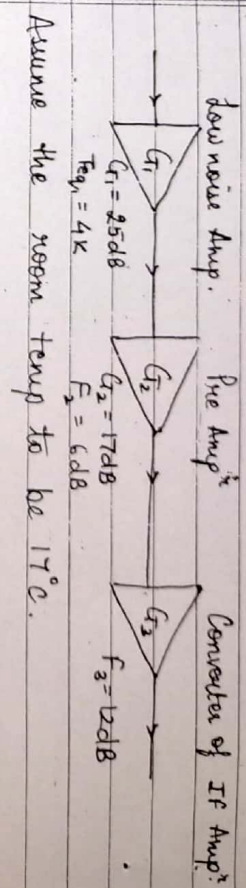 Low noise Amp. Pre Amp^r Converter of IF Amp^r.
G1 G2 G3
G1 = 25dB G2 = 17dB F3 = 12dB
Teq1 = 4K F2 = 6dB
Assume the room temp to be 17°C.